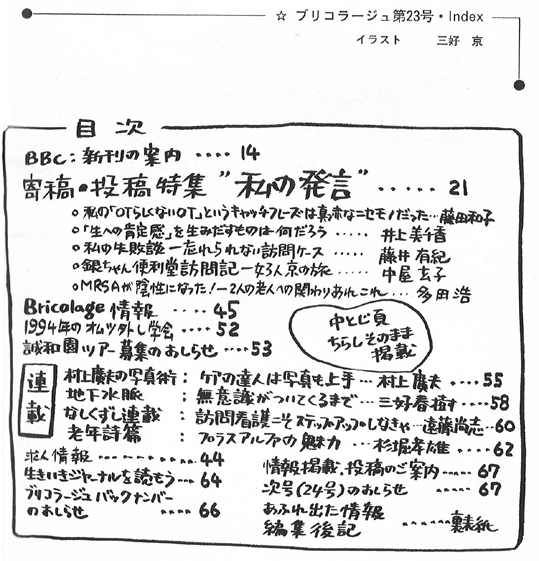 ☆ ブリコラージュ第23号・Index
イラスト 三好 京
目次
BBC：新刊の案内 ‥‥ 14
寄稿・投稿特集 "私の発言" ‥‥‥ 21
○私の「OTらしくないOT」というキャッチフレーズは真赤なニセモノだった‥藤田和子
○「生への肯定感」を生みだすものは何だろう ‥‥‥ 井上美千香
○私の失敗談 ー忘れられない訪問ケース ‥‥‥ 藤井有紀
○銀ちゃん便利堂訪問記ー女3人京の旅 ‥‥‥ 中屋玄子
○MRSAが陰性になった！ー2人の老人への関わりあれこれ‥‥ 多田浩
Bricolage 情報 ‥‥ 45
1994年のオムツ外し学会 ‥‥ 52
誠和園ツアー募集のおしらせ ‥‥ 53
中とじ頁
ちらしそのまま
掲載
連載
村上廣夫の写真術：ケアの達人は写真も上手‥‥村上廣夫 ‥‥ 55
地下水脈：無意識がついてくるまで‥‥三好春樹 ‥‥ 58
なしくずし連載：訪問看護こそステップアップしなきゃ‥遠藤尚志‥60
老年詩篇：プラスアルファの魅力 ‥‥ 杉堀孝雄 ‥‥ 62
求人情報 ‥‥‥‥ 44
生きいきジャーナルを読もう‥‥ 64
ブリコラージュバックナンバー
のおしらせ ‥‥‥ 66
情報掲載、投稿のご案内 ‥‥ 67
次号(24号)のおしらせ ‥‥‥ 67
あふれ出た情報
編集後記 ‥‥‥裏表紙